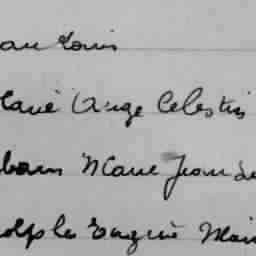 an Louis
Marie Ange Celestin
bain Marie Jean
olphe Eugène Mari